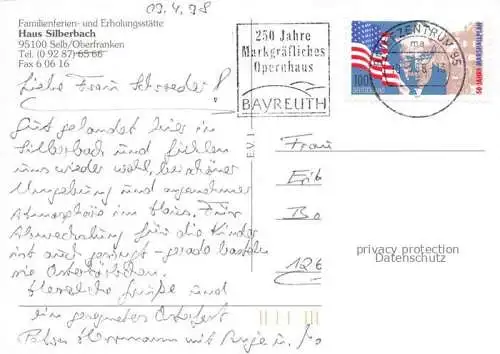 03.4.98
Familienferien- und Erholungsstätte
Haus Silberbach
95100 Selb/Oberfranken
Tel. (0 92 87) 65 66
Fax 6 06 16
250 Jahre
Markgräfliches
Opernhaus
BAYREUTH
BRIEFZENTRUM 95
ma
100
50 JAHRE MARSHALLPLAN
Liebe Frau Schroeder!
Gut gelandet hier in
Silberbach und fühlen
uns wieder wohl, bei schöner
Umgebung und angenehmer
Atmosphäre im Haus. Für
Abwechslung für die Kinder
ist auch gesorgt - gerade basteln
sie Osterkörbchen.
Herzliche Grüße und
ein gesegnetes Osterfest
Herrmann mit
E.V. I
Frau
Eri
Bo
126
privacy protection
Datenschutz